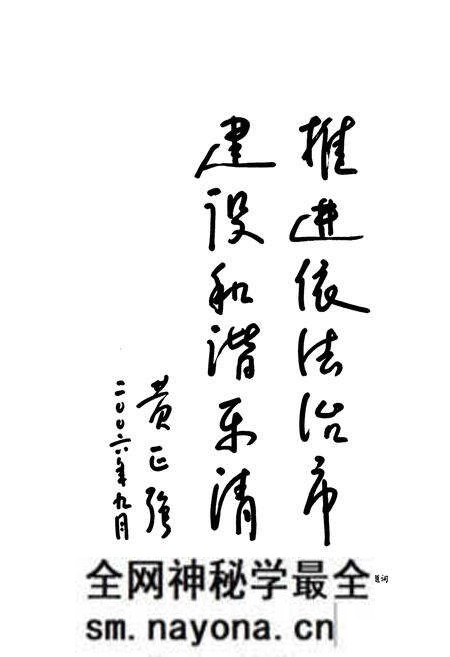 推进依法治市
建设和谐乐清
黄正强
二〇〇六年九月
题词
全网神秘学最全
sm.nayona.cn